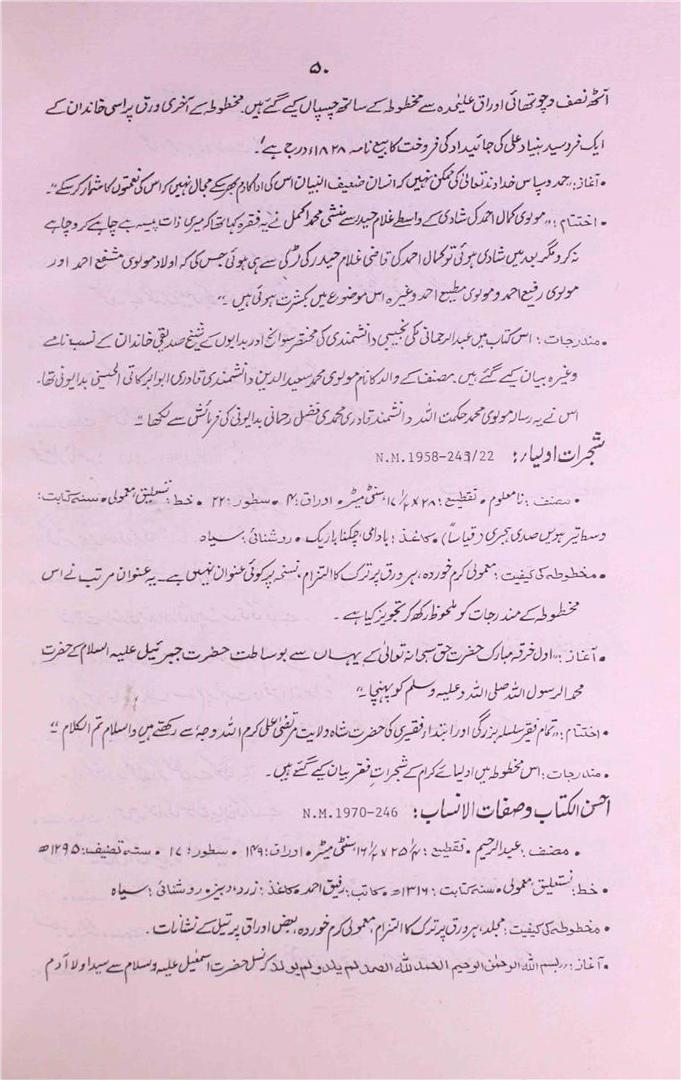 ۵۰
آٹھ نصف و چوتھائی اوراق علیٰحدہ سے مخطوطہ کے ساتھ چسپاں کیے گئے ہیں۔ مخطوطہ کے آخری ورق پر اسی خاندان کے
ایک فرد سید بنیاد علی کی جائیداد کی فروخت کا بیع نامہ ۱۸۲۸ء درج ہے۔
• آغاز: "حمد و سپاس خداوند تعالیٰ کی ممکن نہیں کہ انسان ضعیف البنیان اس کی ادا کا دم بھر سکے مجال نہیں کہ اس کی نعمتوں کا شمار کر سکے"۔
• اختتام: "مولوی کمال احمد کی شادی کے واسطے غلام حیدر سے منشی محمد اکمل نے یہ فقرہ کہا تھا کہ میری ذات پیسہ ہے چاہے کرو چاہے
نہ کرو مگر بعد میں شادی ہوئی تو کمال احمد کی قاضی غلام حیدر کی لڑکی سے ہی ہوئی جس کی کہ اولاد مولوی مشفع احمد اور
مولوی رفیع احمد و مولوی مطیع احمد وغیرہ اس موضوع میں بکثرت ہوئی ہیں"۔
• مندرجات: اس کتاب میں عبدالرحمانی مکی نجیبی دانشمندی کی مختصر سوانح اور بدایوں کے شیخ صدیقی خاندان کے نسب نامے
وغیرہ بیان کیے گئے ہیں۔ مصنف کے والد کا نام مولوی محمد سعید الدین دانشمندی قادری ابوالبرکاتی الحسینی بدایونی تھا۔
اس نے یہ رسالہ مولوی محمد حکمت اللہ دانشمند قادری محمدی فضل رحمانی بدایونی کی فرمائش سے لکھا"۔
شجرات اولیاء: N.M.1958-245/22
• مصنف: نامعلوم • تقطیع: ۲۸ x ۱۷/۲ سنٹی میٹر • اوراق: ۴ • سطور: ۲۲ • خط: نستعلیق، معمولی • سنہ کتابت:
وسط تیرہویں صدی ہجری (قیاساً) • کاغذ: بادامی، چکنا باریک • روشنائی: سیاہ
• مخطوطہ کی کیفیت: معمولی کرم خوردہ، ہر ورق پر ترک کا التزام، نسخہ پر کوئی عنوان نہیں ہے۔ یہ عنوان مرتب نے اس
مخطوطہ کے مندرجات کو ملحوظ رکھ کر تجویز کیا ہے۔
• آغاز: "اول خرقہ مبارک حضرت حق سبحانہ تعالیٰ کے یہاں سے بوساطت حضرت جبرئیل علیہ السلام کے حضرت
محمد الرسول اللہ صلی اللہ و علیہ وسلم کو پہنچا"۔
• اختتام: "تمام فقیر سلسلہ بزرگی اور ابتداء فقیری کی حضرت شاہ ولایت مرتضیٰ علی کرم اللہ وجہہ سے رکھتے ہیں والسلام تم الکلام"۔
• مندرجات: اس مخطوطہ میں اولیائے کرام کے شجرات فقر بیان کیے گئے ہیں۔
احسن الکتاب و صفات الانساب: N.M.1970-246
• مصنف: عبدالرحیم • تقطیع: ۲۵/۲ x ۱۶/۲ سنٹی میٹر • اوراق: ۱۴۹ • سطور: ۱۷ • سنہ تصنیف: ۱۲۹۵ھ
• خط: نستعلیق، معمولی • سنہ کتابت: ۱۳۱۶ھ • کاتب: رفیق احمد • کاغذ: زرد، دبیز • روشنائی: سیاہ
• مخطوطہ کی کیفیت: مجلد، ہر ورق پر ترک کا التزام، معمولی کرم خوردہ، بعض اوراق پر تیل کے نشانات۔
• آغاز: "بسم اللہ الرحمٰن الرحیم الحمد للہ اللہ الصمد لم یلد ولم یولد کہ نسل حضرت اسمٰعیل علیہ و سلام سے سید اولاد آدم